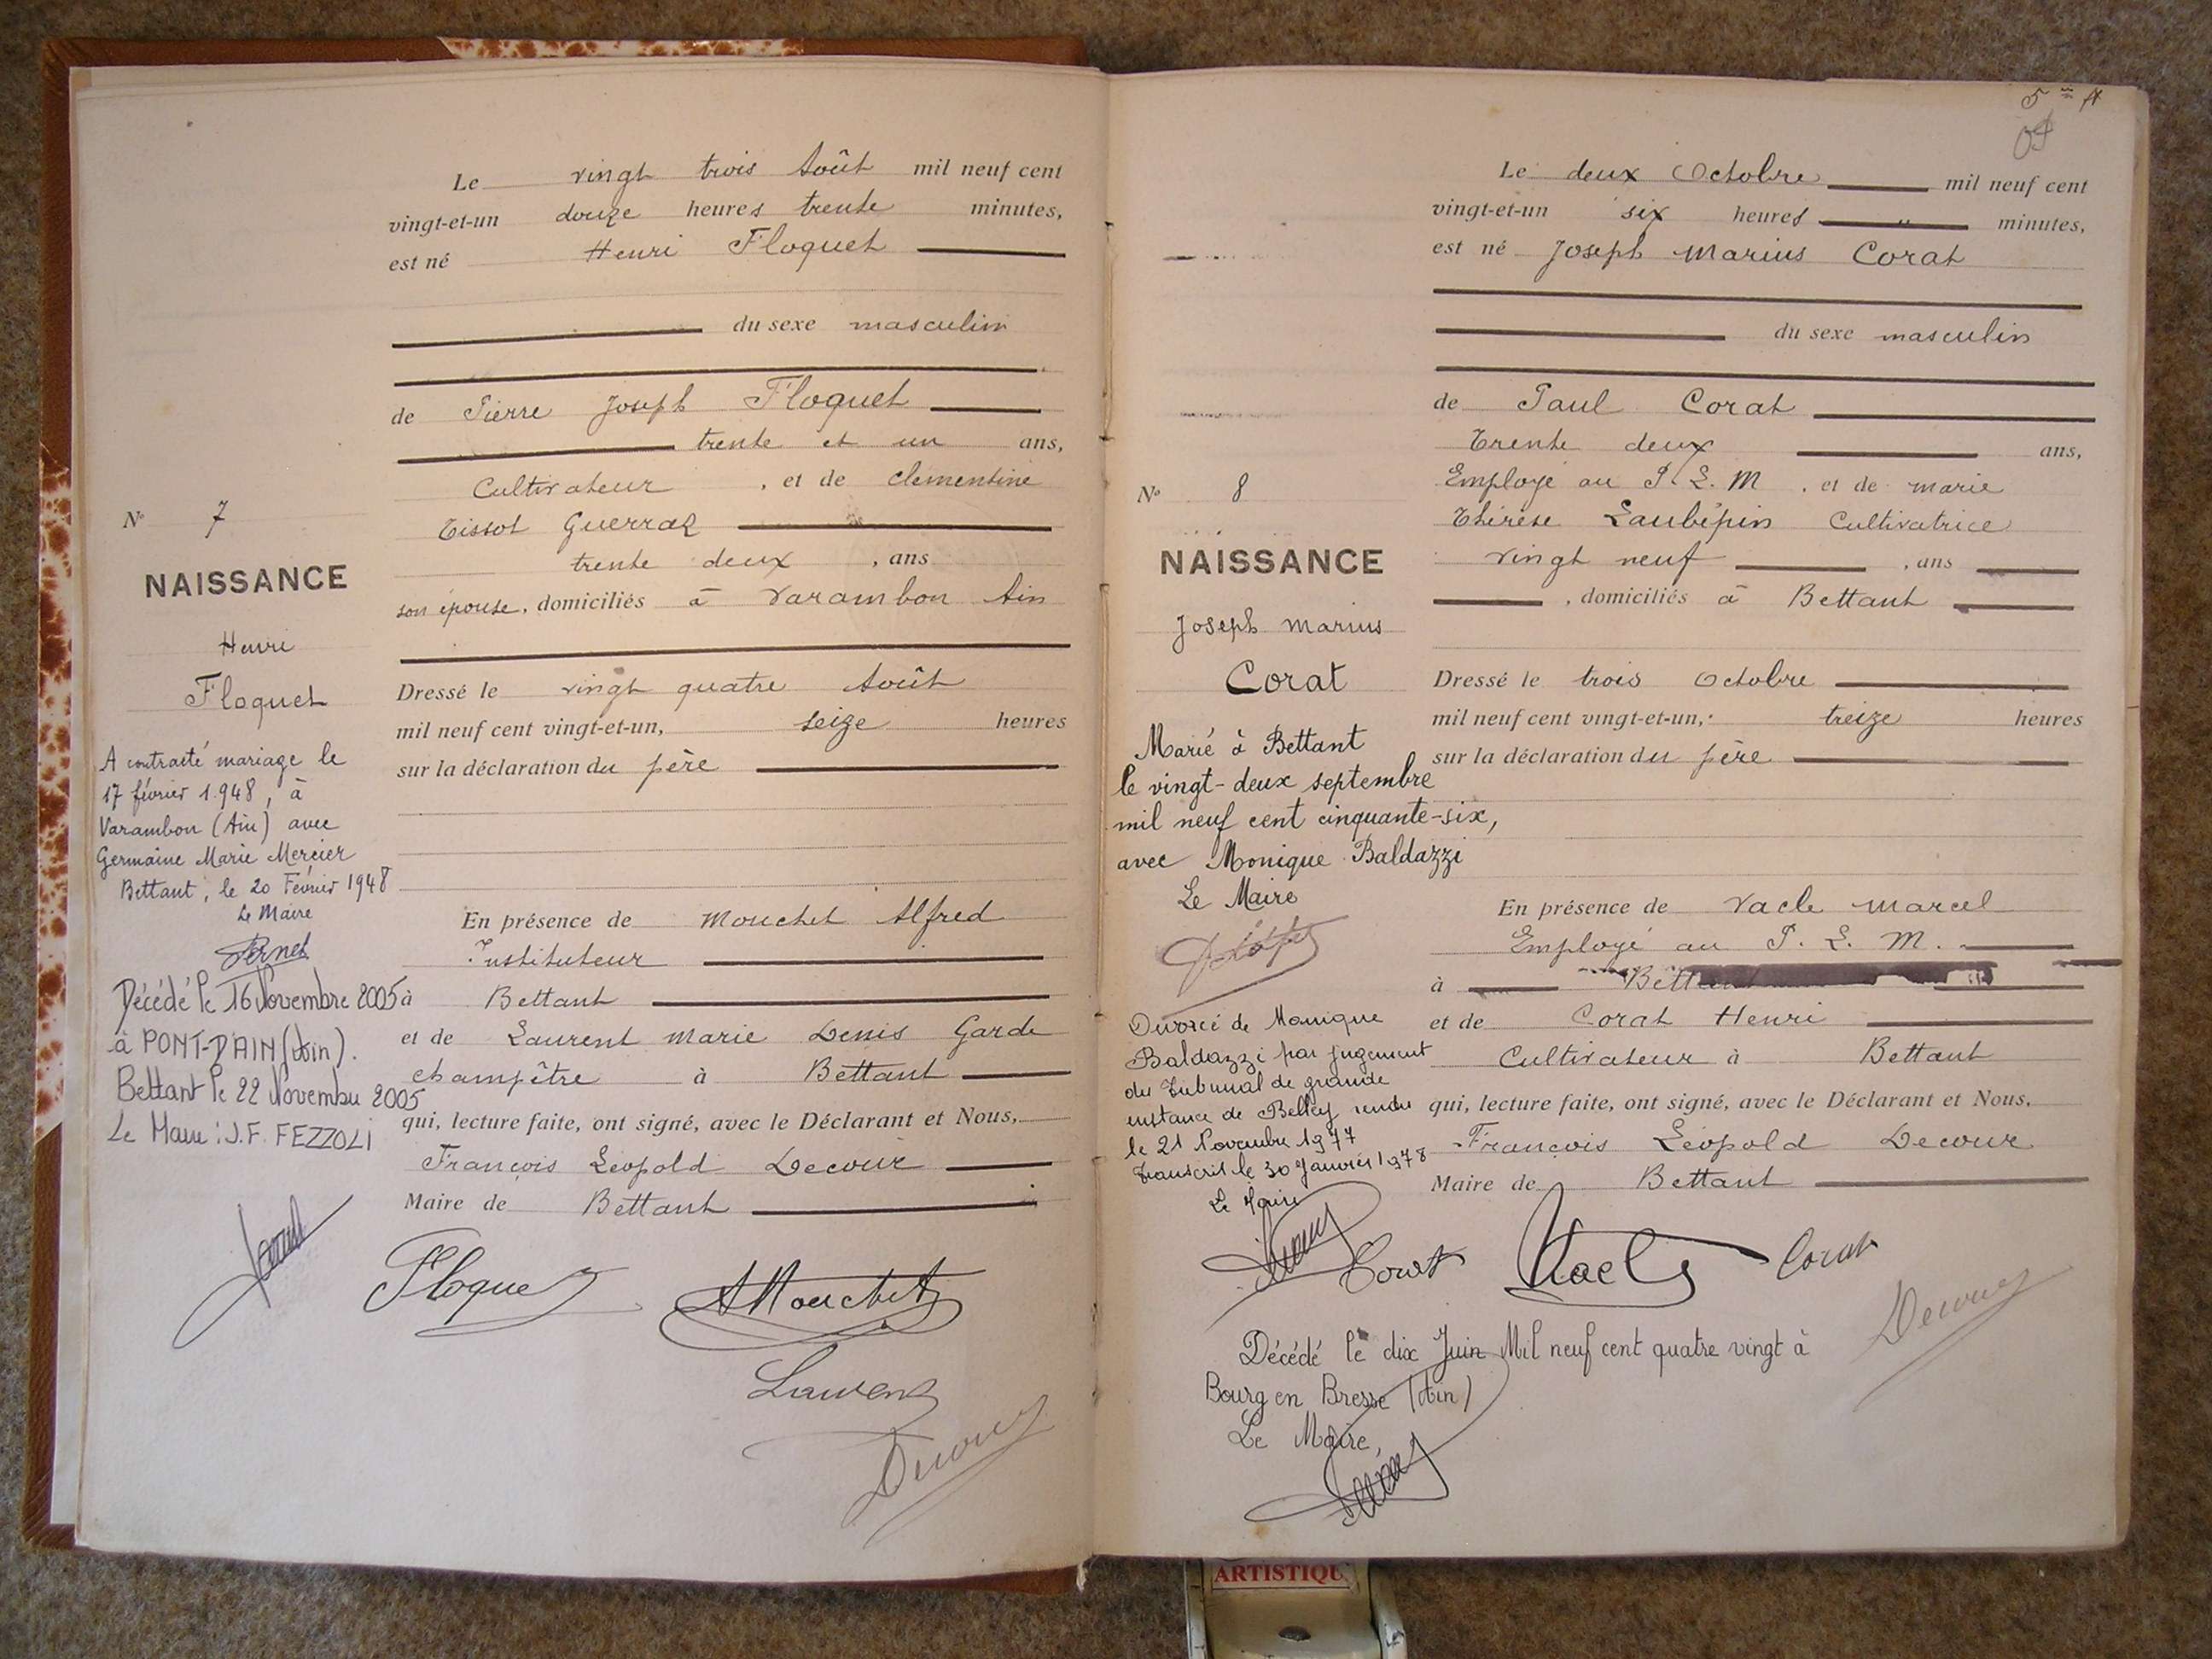 Le vingt trois Août mil neuf cent
vingt-et-un douze heures trente minutes,
est né Henri Floquet
du sexe masculin
de Pierre Joseph Floquet
trente et un ans,
Cultivateur, et de clémentine
Tissot Guerraz
trente deux, ans
son épouse, domiciliés à Varambon Ain
Dressé le vingt quatre Août
mil neuf cent vingt-et-un, seize heures
sur la déclaration du père
En présence de Mouchet Alfred
Instituteur
à Bettant
et de Laurent Marie Denis Garde
champêtre à Bettant
qui, lecture faite, ont signé, avec le Déclarant et Nous,
François Léopold Decour
Maire de Bettant
N° 7
NAISSANCE
Henri
Floquet
A contracté mariage le
17 février 1948, à
Varambon (Ain) avec
Germaine Marie Mercier
Bettant, le 20 Février 1948
Le Maire
Pernet
Décédé le 16 Novembre 2005
à PONT-D'AIN (Ain).
Bettant le 22 Novembre 2005
Le Maire : J.F. FEZZOLI
Floquet
AMouchet
Laurent
Decour
5me ft
05
Le deux Octobre mil neuf cent
vingt-et-un six heures " minutes,
est né Joseph Marius Corat
du sexe masculin
de Paul Corat
Trente deux ans,
Employé au P.L.M, et de marie
Thérèse Laubépin Cultivatrice
vingt neuf, ans
, domiciliés à Bettant
Dressé le trois Octobre
mil neuf cent vingt-et-un, treize heures
sur la déclaration du père
En présence de Vacle Marcel
Employé au P. L. M.
à Bettant
et de Corat Henri
Cultivateur à Bettant
qui, lecture faite, ont signé, avec le Déclarant et Nous,
François Léopold Decour
Maire de Bettant
N° 8
NAISSANCE
Joseph Marius
Corat
Marié à Bettant
le vingt-deux septembre
mil neuf cent cinquante-six,
avec Monique Baldazzi
Le Maire
Divorcé de Monique
Baldazzi par jugement
du Tribunal de grande
instance de Belley rendu
le 21 Novembre 1977
Transcrit le 30 Janvier 1978
Le Maire
Corat
Vacle
Corat
Decour
Décédé le dix Juin Mil neuf cent quatre vingt à
Bourg en Bresse (Ain)
Le Maire,
ARTISTIQU